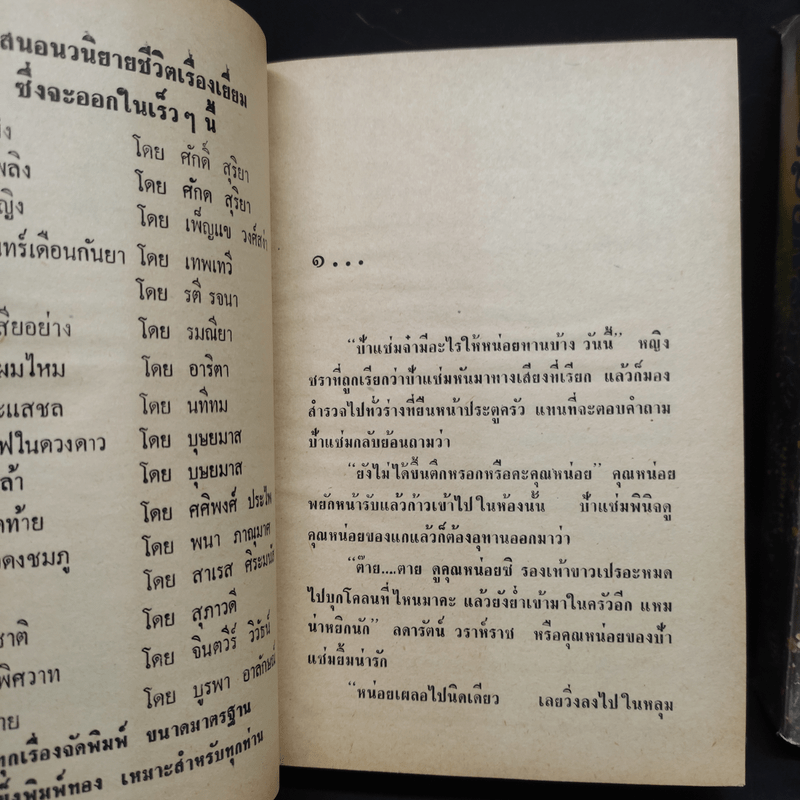 สนอนวนิยายชีวิตเรื่องเยี่ยม
ซึ่งจะออกในเร็วๆ นี้
โดย ศักดิ์ สุริยา
พลิง โดย ศักดิ์ สุริยา
ญิง โดย เพ็ญแข วงศ์สง่า
นทร์เดือนกันยา โดย เทพเทวี
โดย รตี รจนา
สียอย่าง โดย รมณียา
ผมไหม โดย อาริตา
ะแสชล โดย นทีทม
ฟในดวงดาว โดย บุษยมาส
ล้า โดย บุษยมาส
ดท้าย โดย ศศิพงศ์ ประไพ
องชมภู โดย พนา ภาณุมาศ
โดย สาเรส ศิระมนต์
ชาติ โดย สุภาวดี
พิศวาท โดย จินตวีร์ วิวัธน์
าย โดย บูรพา อาลักษณ์
ทุกเรื่องจัดพิมพ์ ขนาดมาตรฐาน
พิมพ์ทอง เหมาะสำหรับทุกท่าน
๑...
“ป้าแช่มจ๋ามีอะไรให้หน่อยทานบ้าง วันนี้” หญิง
ชราที่ถูกเรียกว่าป้าแช่มหันมาทางเสียงที่เรียก แล้วก็มอง
สำรวจไปทั่วร่างที่ยืนหน้าประตูครัว แทนที่จะตอบคำถาม
ป้าแช่มกลับย้อนถามว่า
“ยังไม่ได้ขึ้นตึกหรอกหรือคะคุณหน่อย” คุณหน่อย
พยักหน้ารับแล้วก้าวเข้าไปในห้องนั้น ป้าแช่มพินิจดู
คุณหน่อยของแกแล้วก็ต้องอุทานออกมาว่า
“ต๊าย....ตาย ดูคุณหน่อยซิ รองเท้าขาวเปรอะหมด
ไปบุกโคลนที่ไหนมาคะ แล้วยังย่ำเข้ามาในครัวอีก แหม
น่าหยิกนัก” ลดารัตน์ วราห์ราช หรือคุณหน่อยของป้า
แช่มยิ้มน่ารัก
“หน่อยเผลอไปนิดเดียว เลยวิ่งลงไปในหลุม